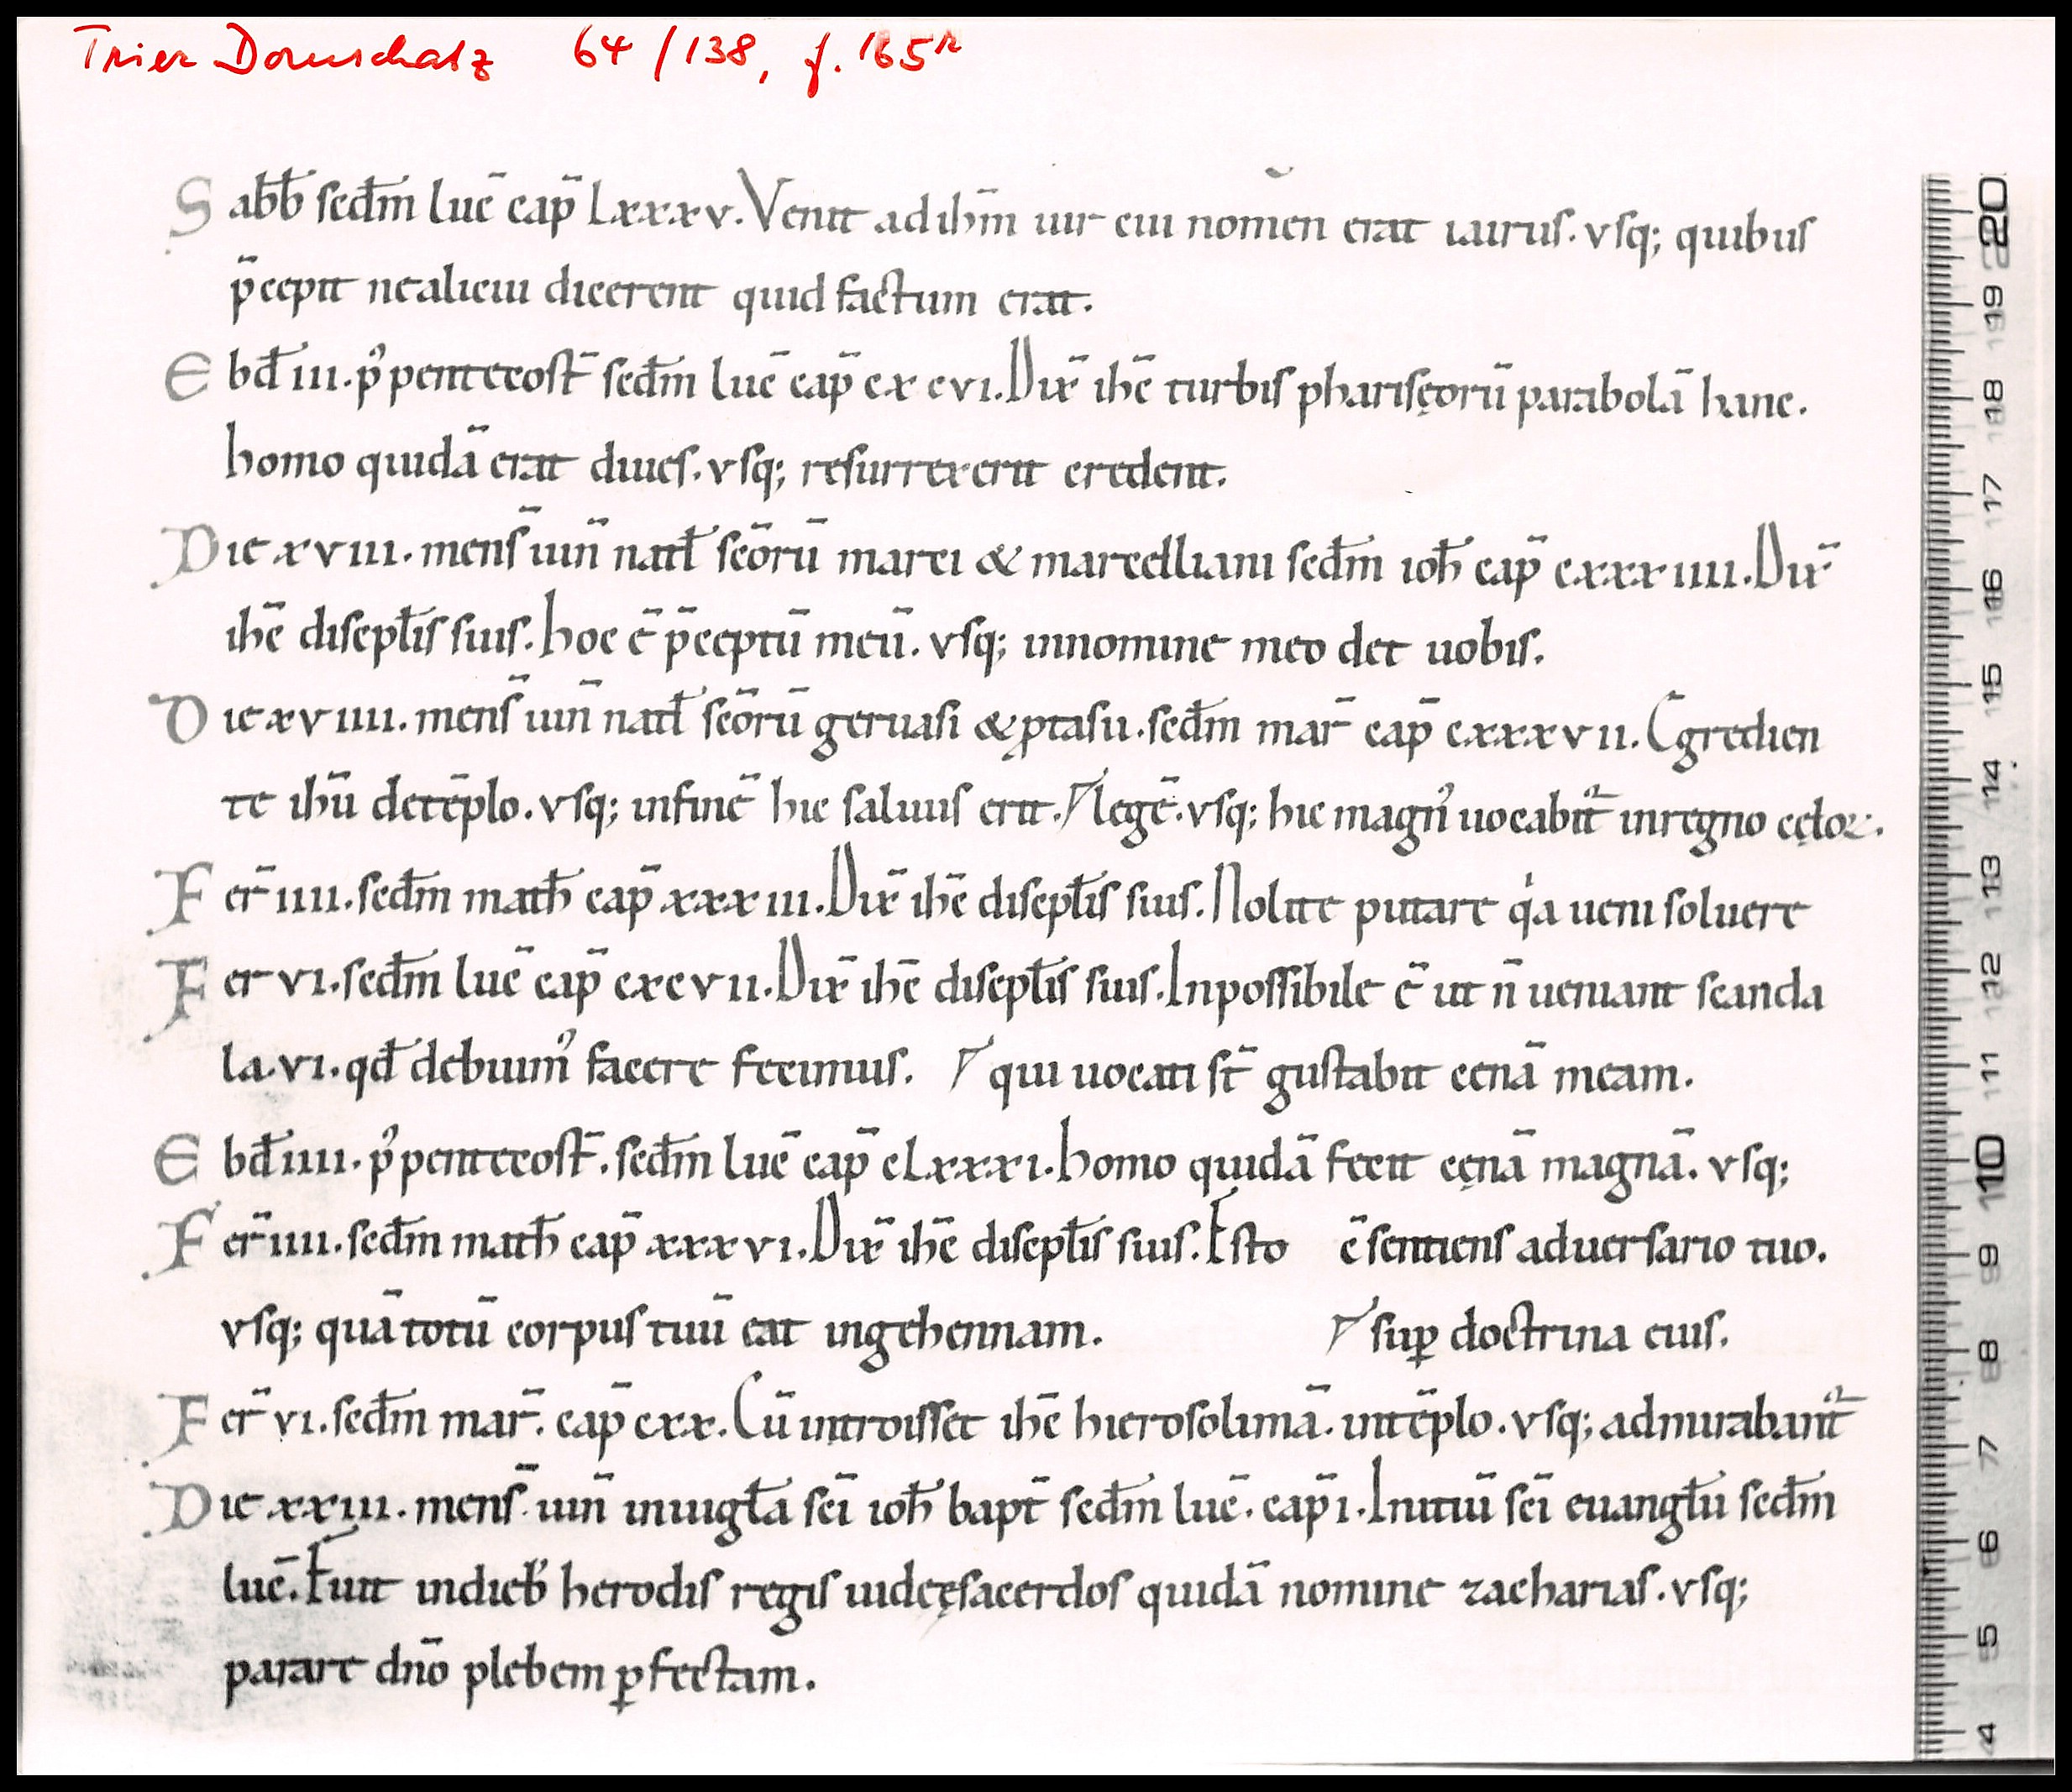 Trier Domschatz 64/138, f. 165r
Sabb̄ sed̄m luc̄ cap̄ Lxxxv. Venit ad ih̄m uir cui nom̄en erat iairus. vsq; quibus
p̄cepit nealicui dicerent quid factum erat.
Ebd̄ III. p᾿ pentecost̄ sed̄m luc̄ cap̄ cxcvI. Dix̄ ih̄c turbis pharisęorū parabolā hanc.
homo quidā erat diues. vsq; resurrexerit credent.
Die xvIII. mens̄ iun̄ natl̄ sc̄orū marci & marcelliani sed̄m ioh̄ cap̄ cxxxIIII. Dix̄
ih̄c discipl̄is suis. hoc ē p̄ceptū meū. vsq; innomine meo det uobis.
Die xvIIII. mens̄ iun̄ natl̄ sc̄orū geruasi & ꝓtasii. sed̄m mar̄ cap̄ cxxxvII. Ēgredien
te ih̄u detēplo. vsq; infinē hic saluus erit. / legē. vsq; hic magn᾿ uocabit᷑ inregno cęloꝝ.
Fer̄ IIII. sed̄m math̄ cap̄ xxxIII. Dix̄ ih̄c discipl̄is suis. Nolite putare qͥa ueni soluere
Fer vI. sed̄m luc̄ cap̄ cxcvII. Dix̄ ih̄c discipl̄is suis. Inpossibile ē ut n̄ ueniant scanda
la. vI. qd̄ debuim᾿ facere fecimus. / qui uocati st̄ gustabit cenā meam.
Ebd̄ IIII. p᾿ pentecost̄. sed̄m luc̄ cap̄ cLxxxI. homo quidā fecit cęnā magnā. vsq;
Fer̄ IIII. sed̄m math̄ cap̄ xxxvI. Dix̄ ih̄c discipl̄is suis. Esto c̄sentiens aduersario tuo.
vsq; quā totū corpus tuū eat ingehennam. / suꝑ doctrina eius.
Fer̄ vI. sed̄m mar̄. cap̄ cxx. Cū introisset ih̄c hierosolimā. intēplo. vsq; admirabant᷑
Die xxIII. mens̄ iun̄ inuigl̄a sc̄i ioh̄ bapt̄ sed̄m luc̄. cap̄ I. Initiū sc̄i euangl̄ii sed̄m
luc̄. Fuit indieb᾿ herodis regis iudeę sacerdos quidā nomine zacharias. vsq;
parare dn̄o plebem ꝑfectam.
20
19
18
17
16
15
14
13
12
11
10
9
8
7
6
5
4